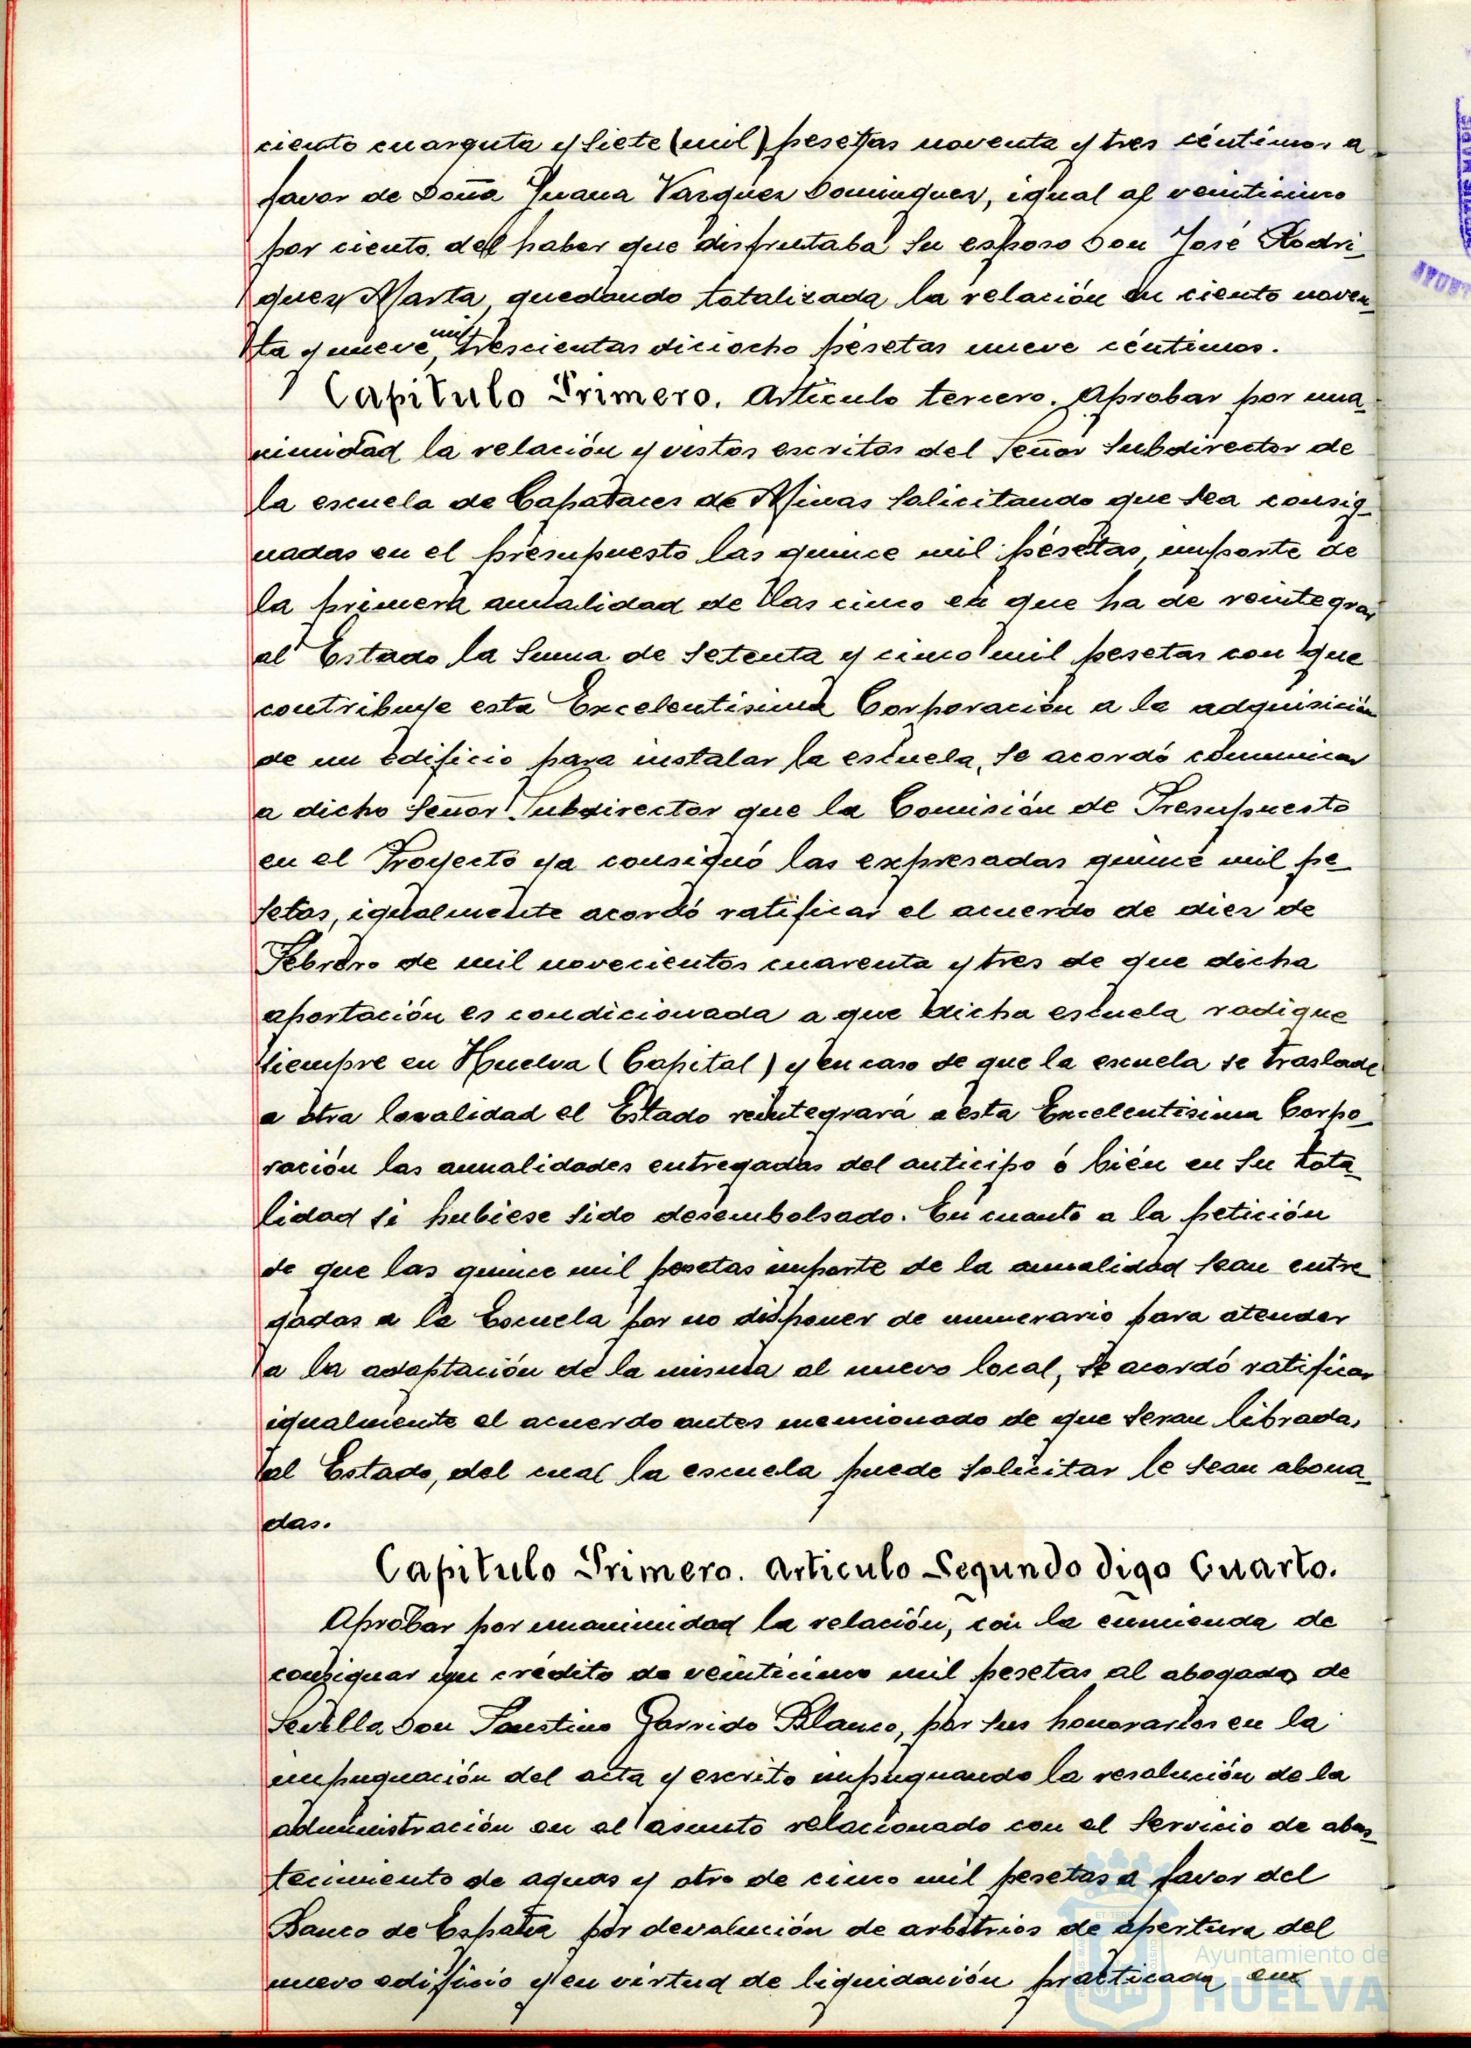 ciento cuarenta y siete (mil) pesetas noventa y tres céntimos a
favor de Doña Juana Vazquez Dominguez, igual al veinticinco
por ciento del haber que disfrutaba su esposo Don José Rodri-
guez Marta, quedando totalizada la relación en ciento noven-
ta y nueve, mil trescientas dieciocho pesetas nueve céntimos.
Capitulo Primero. Articulo tercero. Aprobar por una-
nimidad la relación y vistos escritos del Señor Subdirector de
la escuela de Capataces de Minas solicitando que sea consig-
nadas en el presupuesto las quince mil pesetas, importe de
la primera anualidad de las cinco en que ha de reintegrar
al Estado la suma de setenta y cinco mil pesetas con que
contribuye esta Excelentisima Corporación a la adquisición
de un edificio para instalar la escuela, se acordó comunicar
a dicho Señor Subdirector que la Comisión de Presupuesto
en el Proyecto ya consignó las expresadas quince mil pe-
setas, igualmente acordó ratificar el acuerdo de diez de
Febrero de mil novecientos cuarenta y tres de que dicha
aportación es condicionada a que dicha escuela radique
siempre en Huelva (Capital) y en caso de que la escuela se traslade
a otra localidad el Estado reintegrará a esta Excelentisima Corpo-
ración las anualidades entregadas del anticipo ó bién en su tota-
lidad si hubiese sido desembolsado. En cuanto a la petición
de que las quince mil pesetas importe de la anualidad sean entre-
gadas a la Escuela por no disponer de numerario para atender
a la adaptación de la misma al nuevo local, se acordó ratificar
igualmente el acuerdo antes mencionado de que seran libradas
al Estado, del cual la escuela puede solicitar le sean abona-
das.
Capitulo Primero. Articulo Segundo digo Cuarto.
Aprobar por unanimidad la relación, con la enmienda de
consignar un crédito de veinticinco mil pesetas al abogado de
Sevilla Don Faustino Garrido Blanco, por sus honorarios en la
impugnación del acta y escrito impugnando la resolución de la
administración en el asunto relacionado con el servicio de abas-
tecimiento de aguas y otro de cinco mil pesetas a favor del
Banco de España por devolución de arbitrios de apertura del
nuevo edificio y en virtud de liquidación practicada en
Ayuntamiento de
HUELVA